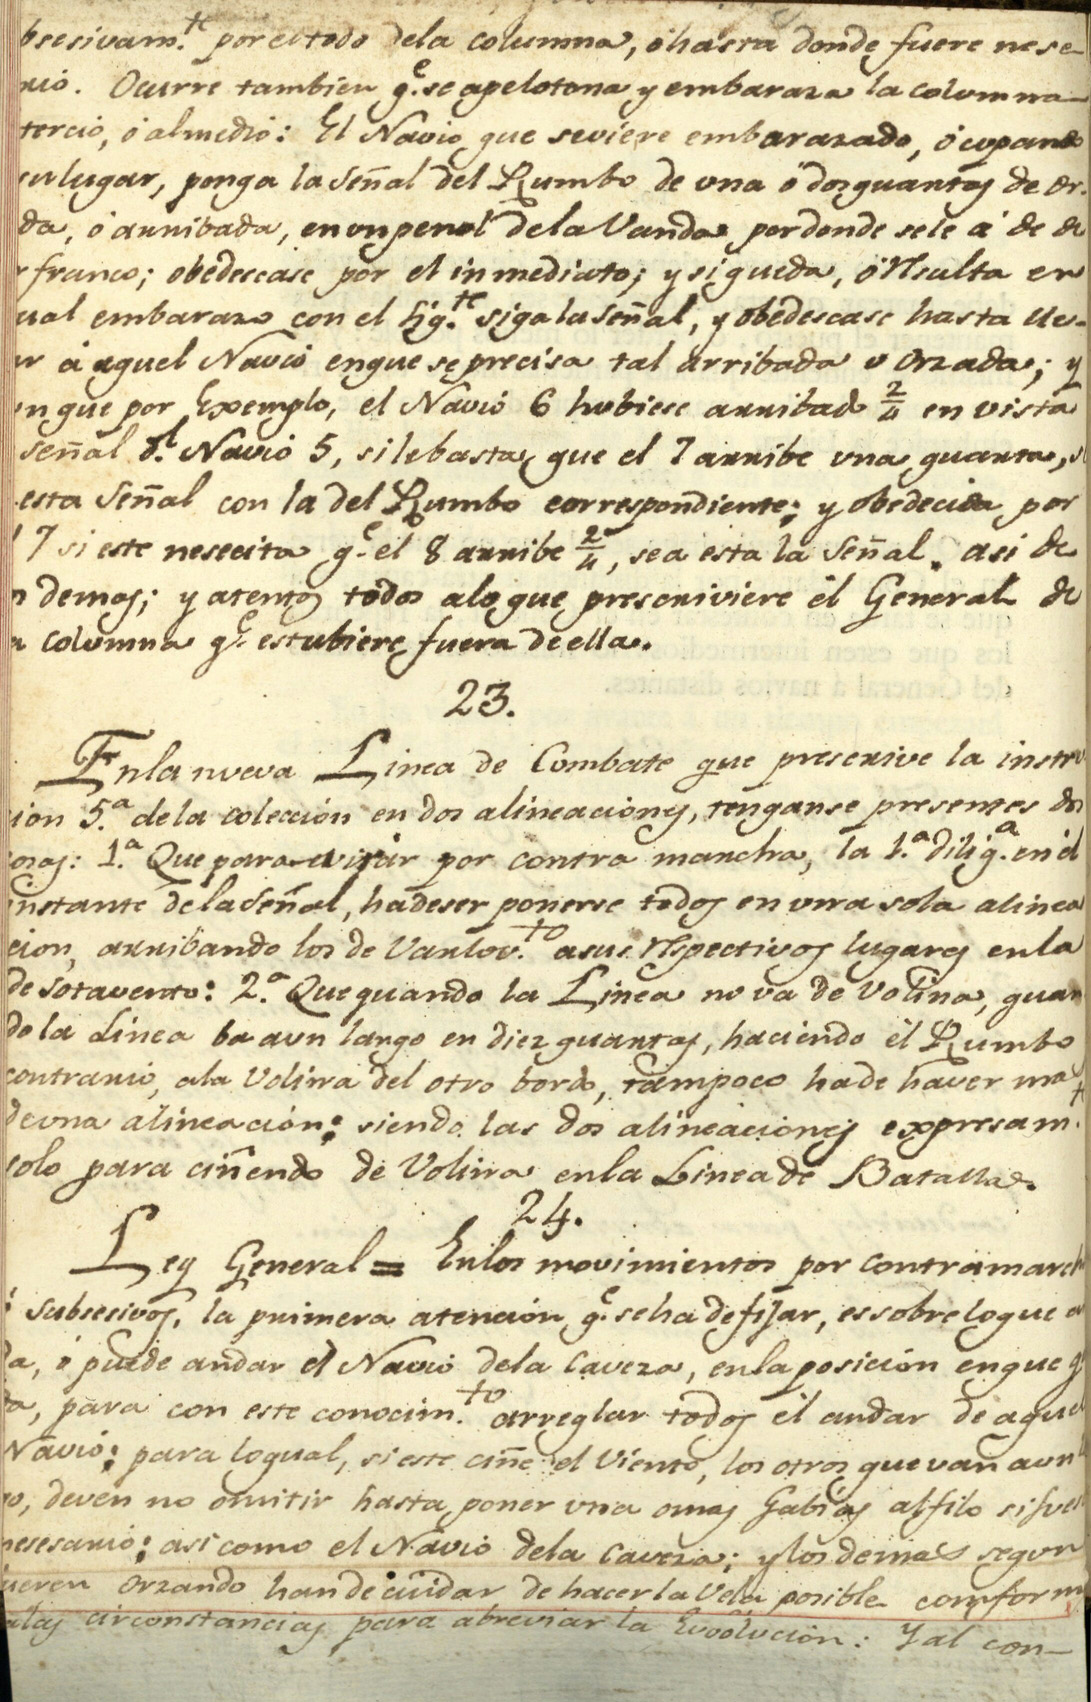 bsesivam.te por el todo dela columna, ó hasta donde fuere nese-
rio. Ocurre tambien q.e se apelotona y embaraza la columna
tercio, ó al medio: El Navio que seviere embarazado, ó cupando
su lugar, ponga la Señal del Rumbo de una ó dos quartas de Or-
da, ó arribada, en un penol dela Vanda por donde sele á de de
franco; obedescase por el inmediato; y si queda, ó resulta en
ual embarazo con el sig.te siga la Señal, y obedescase hasta lle-
ar á aquel Navio en que se precisa tal arribada ú Orzada; y
n que por Exemplo, el Navio 6 hubiese arribado 2/4 en vista
señal d.l Navio 5, si le basta que el 7 arribe una quarta,
esta Señal con la del Rumbo correspondiente; y obedecida por
l 7 si este nesecita q.e el 8 arribe 2/4, sea esta la Señal. asi de
s demas; y atentos todos alo que prescriviere el General de
a columna q.e estubiere fuera de ella.
23.
En la nueva Linea de Combate que prescrive la instru
cion 5.a dela colección en dos alineaciones, tenganse presentes dos
cosas: 1.a Que para virar por contra marcha, la 1.a dilig.a en él
instante dela Señal, hadeser ponerse todos en una sola alinea
cion, arribando los de Varlov.to asus respectivos lugares en la
de sotavento: 2.a Que quando la Linea no va de Volina, quan
do la Linea ba a un largo en diez quartas, haciendo él Rumbo
contrario, ala Volina del otro bordo, tampoco hade haver mas
de una alineación; siendo las dos alineaciones expresam.te
solo para ciñendo de Volina en la Linea de Batalla.
24.
Ley General = En los movimientos por contramarch
ó subsesivos, la primera atención q.e se ha de fijar, es sobre lo que a
da, ó puede andar el Navio dela Caveza, en la posición en que q
da, para con este conocim.to arreglar todos él andar de aquel
Navio; para lo qual, si este ciñe el Viento, los otros que van a un l
go, deven no omitir hasta poner una omas Gabias al filo si fuese
nesesario; asi como el Navio dela Caveza; y los demas segun
fueren Orzando han de cuidar de hacer la Vela posible conform
alas circonstancias para abreviar la Evolución: Y al con-